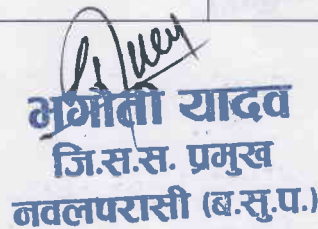 यादव
जि.स.स. प्रमुख
नवलपरासी (ब.सु.प.)